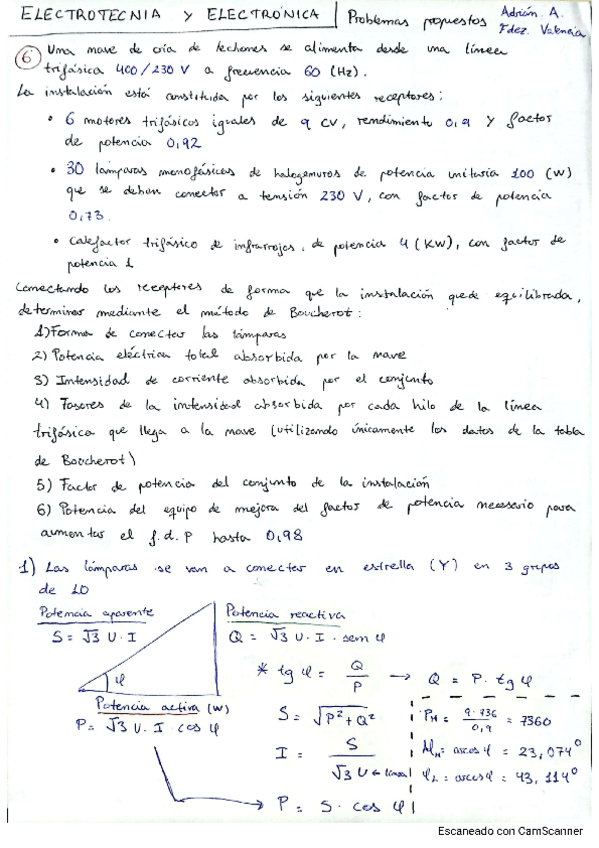 ELECTROTECNIA y ELECTRÓNICA | Problemas propuestos Adrián A. Fdez. Valencia
⑥ Una nave de cría de lechones se alimenta desde una línea
trifásica 400/230 V a frecuencia 60 (Hz).
La instalación está constituida por los siguientes receptores:
• 6 motores trifásicos iguales de 9 CV, rendimiento 0,9 y factor
de potencia 0,92
• 30 lámparas monofásicas de halogenuros de potencia unitaria 100 (W)
que se deben conectar a tensión 230 V, con factor de potencia
0,73.
• Calefactor trifásico de infrarrojos, de potencia 4 (KW), con factor de
potencia 1
Conectando los receptores de forma que la instalación quede equilibrada,
determinar mediante el método de Boucherot:
1) Forma de conectar las lámparas
2) Potencia eléctrica total absorbida por la nave
3) Intensidad de corriente absorbida por el conjunto
4) Fasores de la intensidad absorbida por cada hilo de la línea
trifásica que llega a la nave (utilizando únicamente los datos de la tabla
de Boucherot)
5) Factor de potencia del conjunto de la instalación
6) Potencia del equipo de mejora del factor de potencia necesario para
aumentar el f.d.P hasta 0,98
1) Las lámparas se van a conectar en estrella (Y) en 3 grupos
de 10
Potencia aparente
S = √3 U · I
φ
Potencia activa (W)
P = √3 U · I cos φ
Potencia reactiva
Q = √3 U · I · sen φ
* tg φ = Q/P → Q = P · tg φ
S = √P² + Q²
I = S / √3 U ← línea
P = S · cos φ
P_M = 9·736 / 0,9 = 7360
φ_M = arcos φ = 23,074°
φ_L = arcos φ = 43,114°
Escaneado con CamScanner